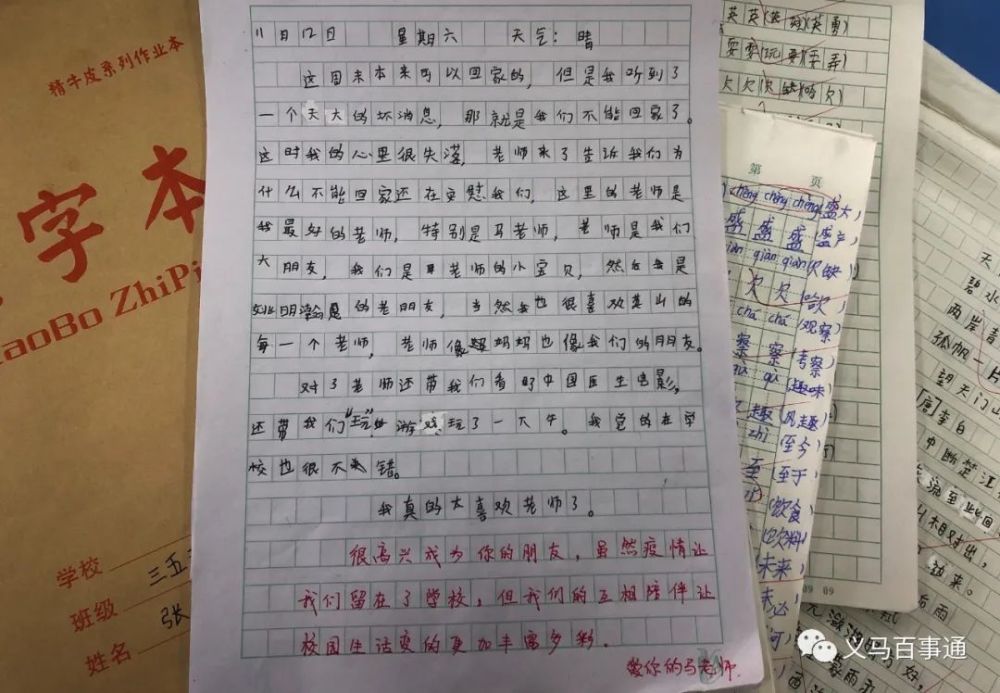 11月12日 星期六 天气:晴
这周末本来可以回家的,但是我听到了
一个天大的坏消息,那就是我们不能回家了。
这时我的心里很失落,老师来了告诉我们为
什么不能回家还在安慰我们,这里的老师是
我最好的老师,特别是马老师,老师是我们
大朋友,我们是老师的小宝贝,然后我是
的老朋友,当然我也很喜欢英山的
每一个老师,老师像妈妈也像我们的朋友。
对了老师还带我们看的中国医生电影,
还带我们"玩"游戏玩了一下午。我觉的在学
校也很不错。
我真的太喜欢老师了。
很高兴成为你的朋友,虽然疫情让
我们留在了学校,但我们的互相陪伴让
校园生活变的更加丰富多彩.
爱你的马老师.
精牛皮系列作业本
字本
aoBo ZhiPi
学校 三五
班级
张
姓名
英英(英勇)
耍耍(玩耍)(耍弄)
欠欠(欠缺)(哈欠)
第 页
chéng chéng chéng(盛大)
盛盛盛(盛产)
qiàn qiàn(欠缺)
欠欠(哈欠)
chá chá(观察)
察察(考察)
qù qù(趣味)
趣(风趣)
zhì(至今)
至(至于)
(饮食)
(饮料)
(未来)
09 09
天
碧水
两岸青
孤帆一片
望天门山
[唐]李白
中断楚江
流至此回
相对出,
边来。
后雨
义马百事通